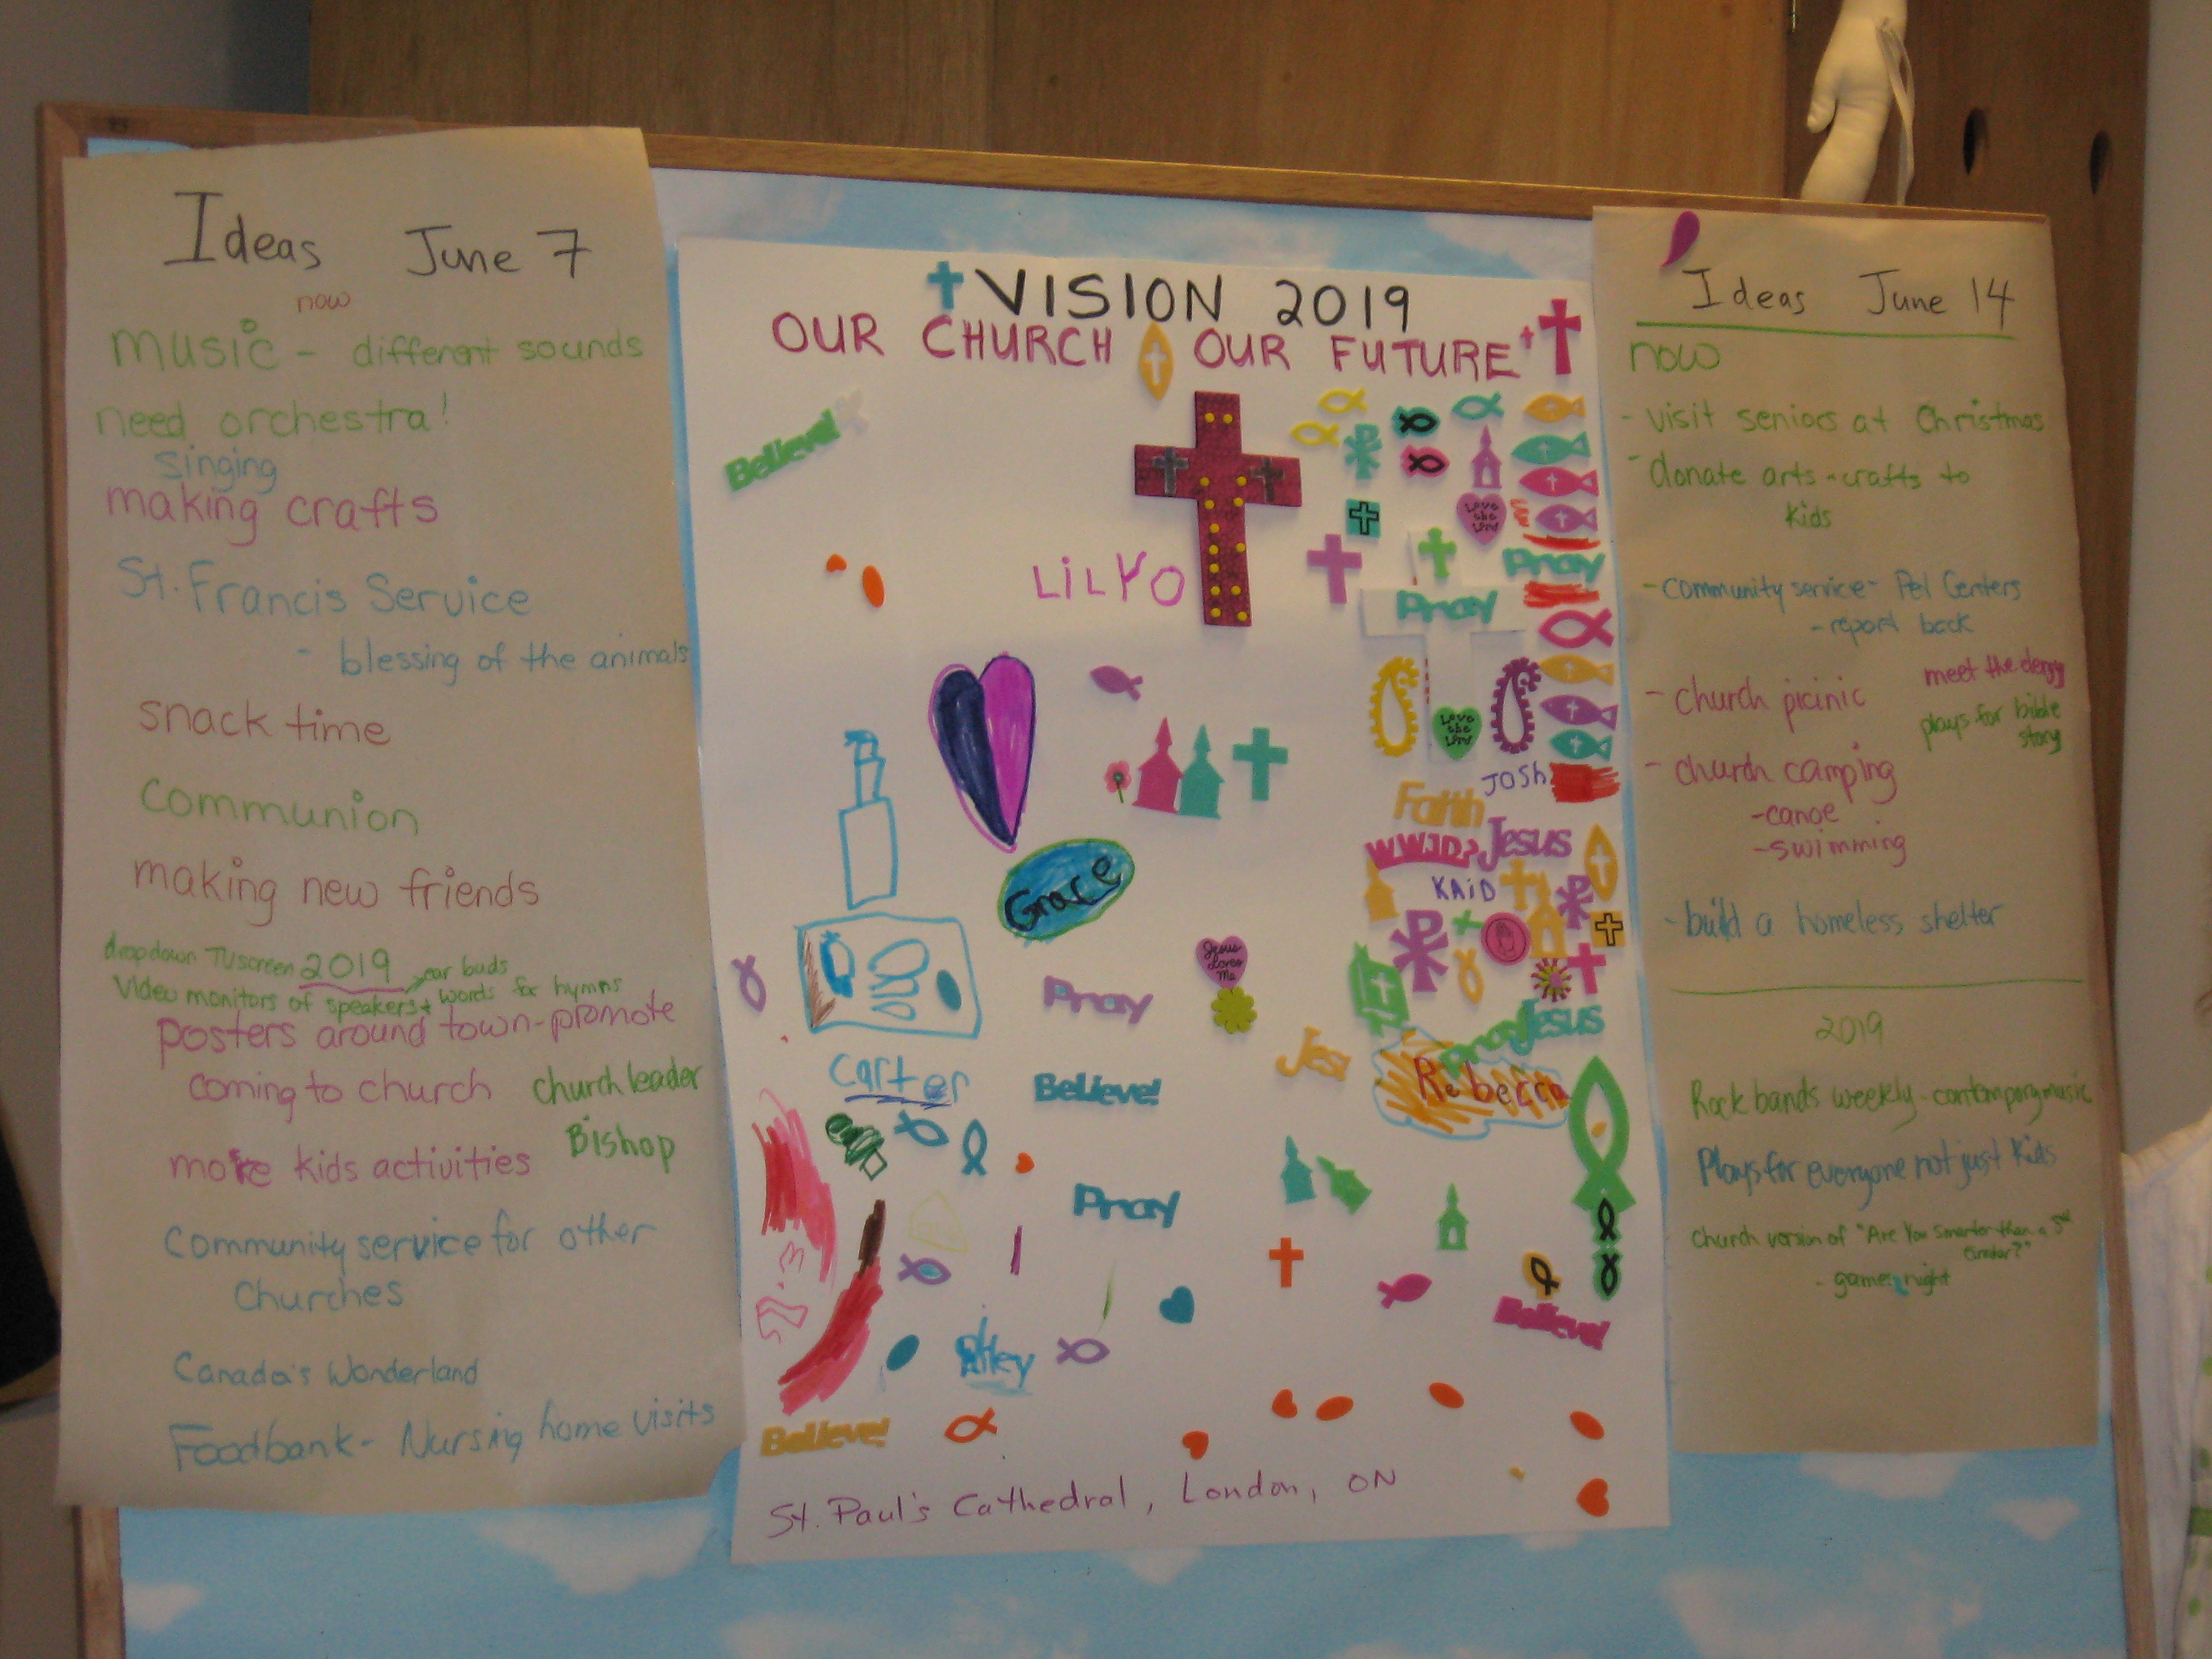 Ideas June 7
now
music - different sounds
need orchestra!
singing
making crafts
St. Francis Service
- blessing of the animals
snack time
communion
making new friends
dropdown TV screen 2019 ear buds
Video monitors of speakers + words for hymns
posters around town - promote
coming to church church leader
Bishop
more kids activities
Community service for other
Churches
Canada's Wonderland
Foodbank - Nursing home visits
VISION 2019
OUR CHURCH OUR FUTURE
Believe!
LiLYO
Love the Lord
Pray
Pray
Love the Lord
JOSH
Faith
WWJD? Jesus
Grace
KAiD
Jesus Loves Me
Pray
Pray Jesus
Jes
Rebecca
Carter
Believe!
Pray
Believe!
Riley
Believe!
St. Paul's Cathedral, London, ON
Ideas June 14
now
- visit seniors at Christmas
- donate arts - crafts to
kids
- community service - Pet Centers
- report back
- church picinic
meet the clergy
plays for bible
story
- church camping
- canoe
- swimming
- build a homeless shelter
2019
Rock bands weekly - contemporymusic
Plays for everyone not just kids
Church version of "Are You Smarter than a 5th
Grader?"
- games night